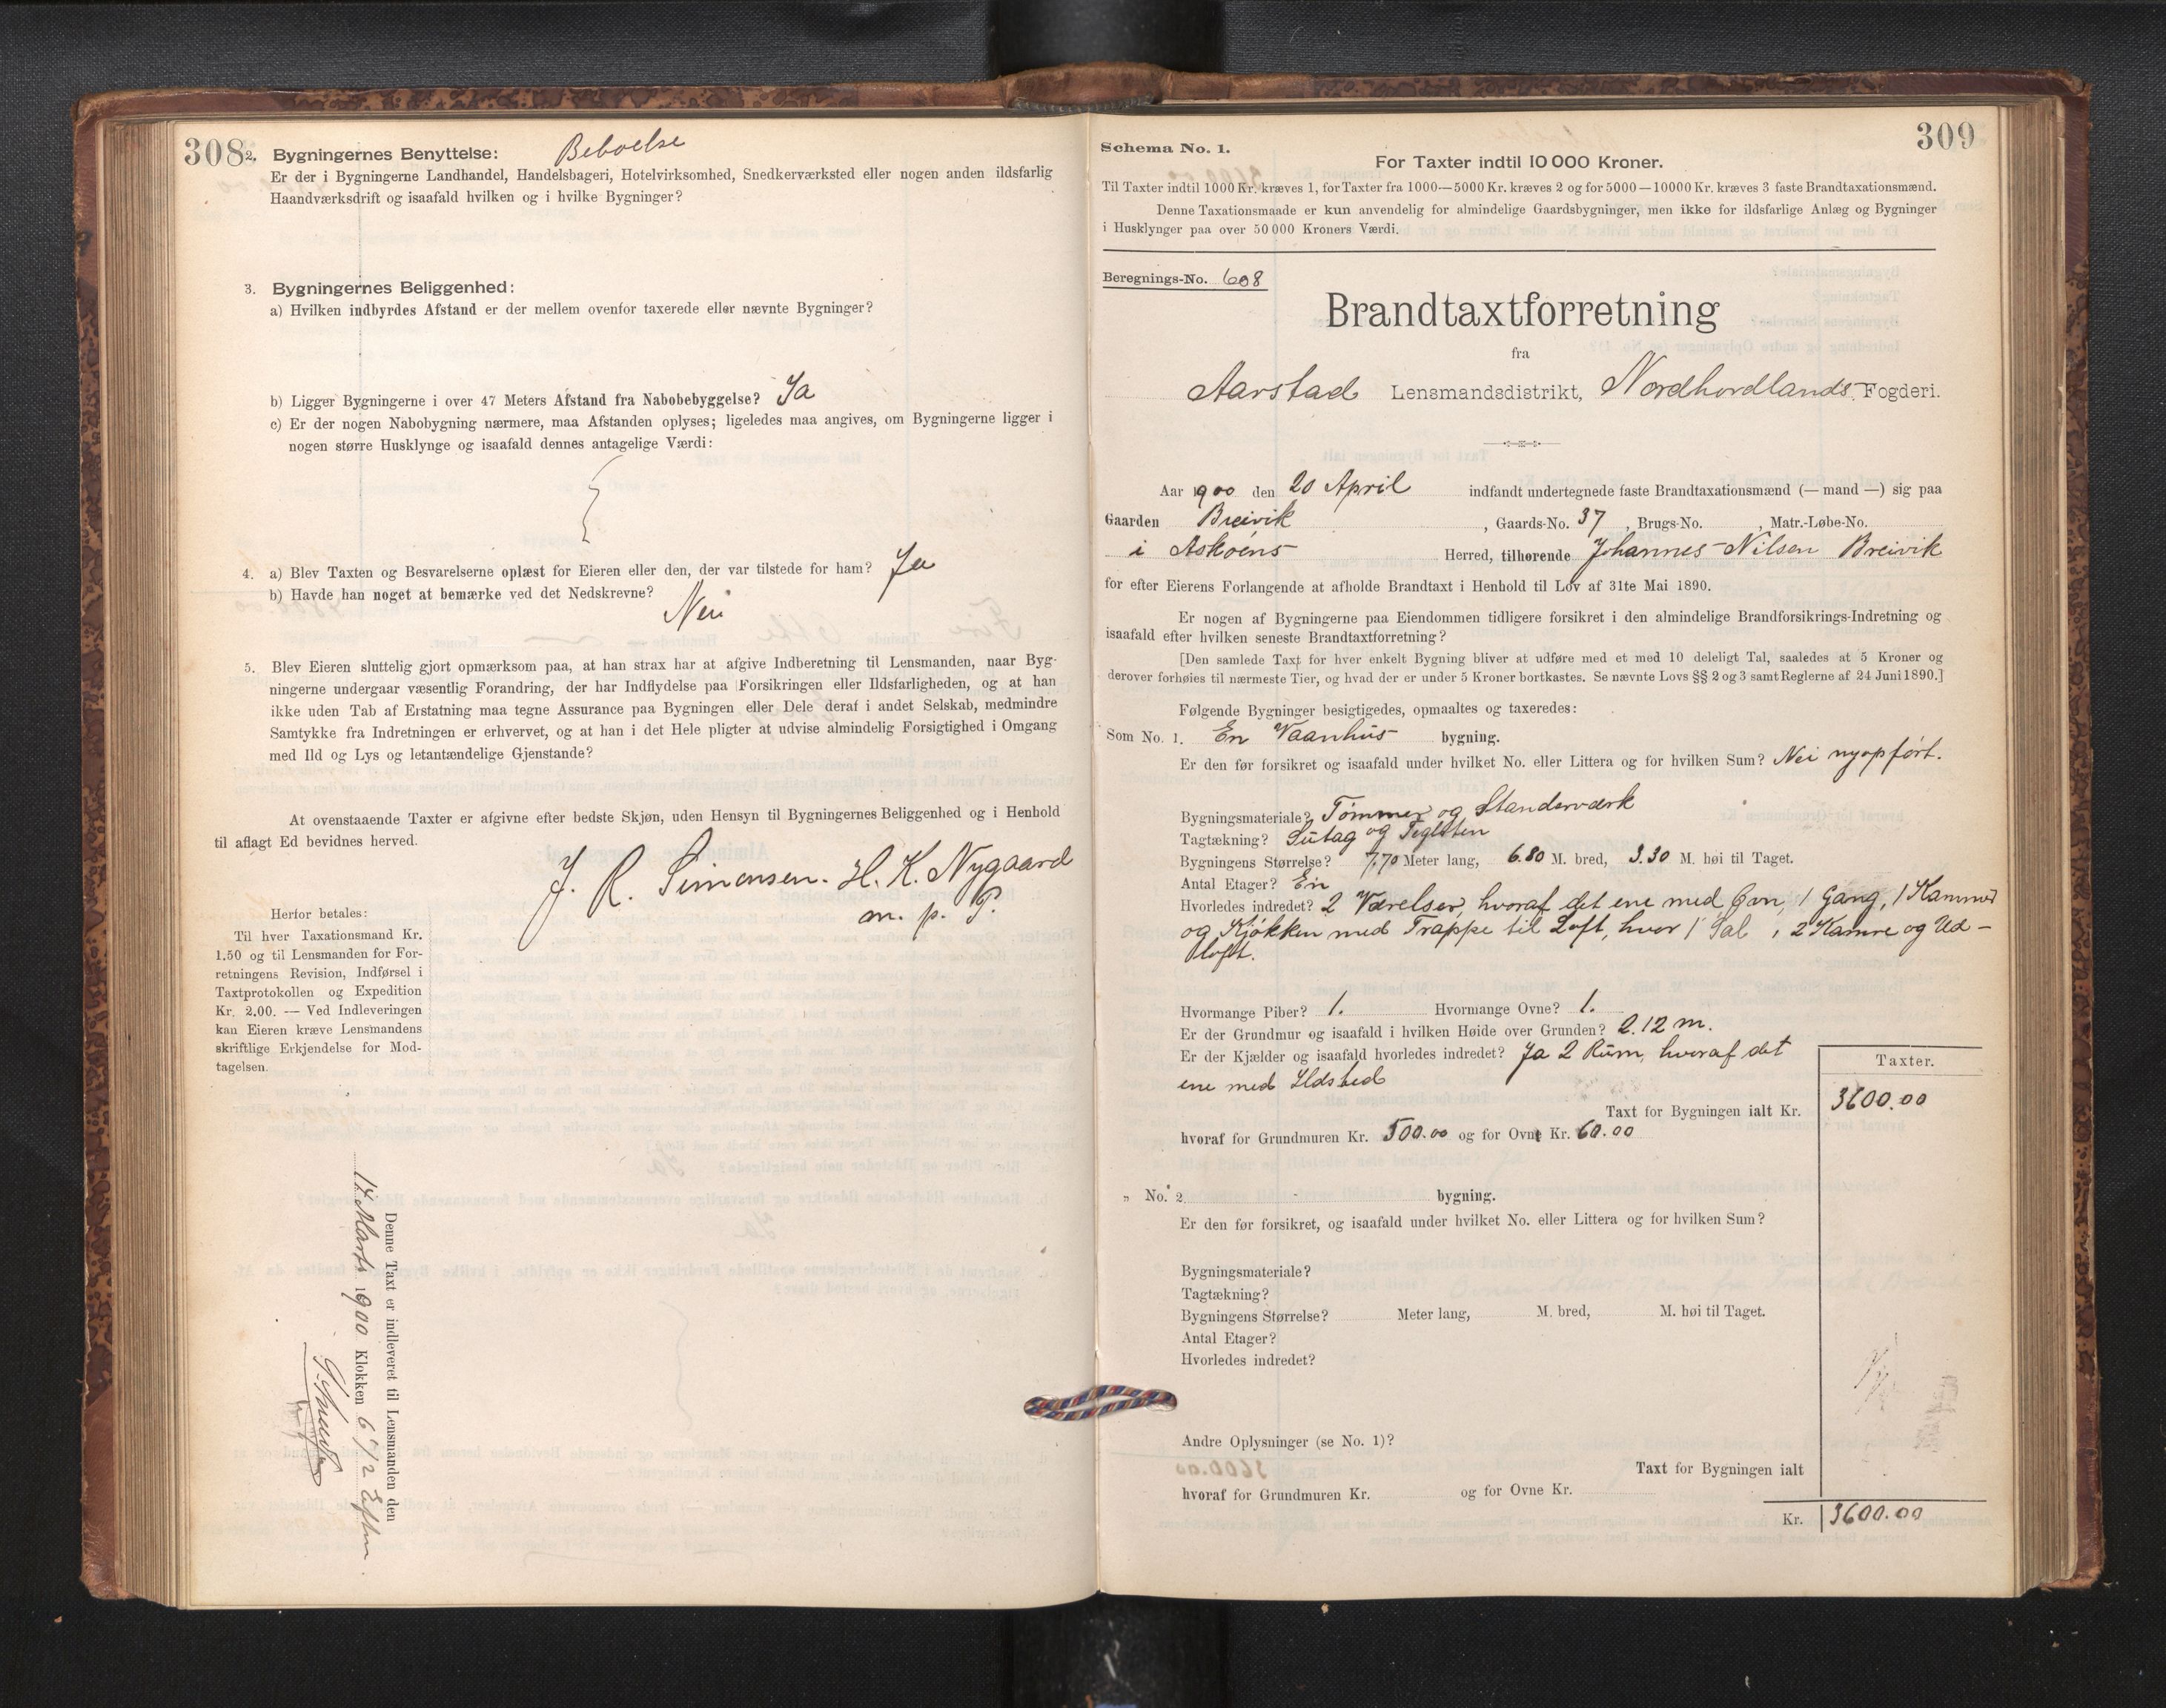 308
2. Bygningernes Benyttelse: Beboelse
Er der i Bygningerne Landhandel, Handelsbageri, Hotelvirksomhed, Snedkerværksted eller nogen anden ildsfarlig
Haandværksdrift og isaafald hvilken og i hvilke Bygninger?
3. Bygningernes Beliggenhed:
a) Hvilken indbyrdes Afstand er der mellem ovenfor taxerede eller nævnte Bygninger?
b) Ligger Bygningerne i over 47 Meters Afstand fra Nabobebyggelse? Ja
c) Er der nogen Nabobygning nærmere, maa Afstanden oplyses; ligeledes maa angives, om Bygningerne ligger i
nogen større Husklynge og isaafald dennes antagelige Værdi:
4. a) Blev Taxten og Besvarelserne oplæst for Eieren eller den, der var tilstede for ham? Ja
b) Havde han noget at bemærke ved det Nedskrevne? Nei
5. Blev Eieren sluttelig gjort opmærksom paa, at han strax har at afgive Indberetning til Lensmanden, naar Byg-
ningerne undergaar væsentlig Forandring, der har Indflydelse paa Forsikringen eller Ildsfarligheden, og at han
ikke uden Tab af Erstatning maa tegne Assurance paa Bygningen eller Dele deraf i andet Selskab, medmindre
Samtykke fra Indretningen er erhvervet, og at han i det Hele pligter at udvise almindelig Forsigtighed i Omgang
med Ild og Lys og letantændelige Gjenstande?
At ovenstaaende Taxter er afgivne efter bedste Skjøn, uden Hensyn til Bygningernes Beliggenhed og i Henhold
til aflagt Ed bevidnes herved.
J. R. Simonsen. H. K. Nygaard
m. p. P.
Herfor betales:
Til hver Taxationsmand Kr.
1.50 og til Lensmanden for For-
retningens Revision, Indførsel i
Taxtprotokollen og Expedition
Kr. 2.00. — Ved Indleveringen
kan Eieren kræve Lensmandens
skriftlige Erkjendelse for Mod-
tagelsen.
Denne Taxt er indleveret til Lensmanden den
14 Marts 1900 Klokken 6 1/2 Eftm
309
Schema No. 1.
For Taxter indtil 10 000 Kroner.
Til Taxter indtil 1000 Kr. kræves 1, for Taxter fra 1000—5000 Kr. kræves 2 og for 5000—10000 Kr. kræves 3 faste Brandtaxationsmænd.
Denne Taxationsmaade er kun anvendelig for almindelige Gaardsbygninger, men ikke for ildsfarlige Anlæg og Bygninger
i Husklynger paa over 50 000 Kroners Værdi.
Beregnings-No. 608
Brandtaxtforretning
fra
Aarstad Lensmandsdistrikt, Nordhordlands Fogderi.
Aar 1900 den 20 April indfandt undertegnede faste Brandtaxationsmænd (— mand —) sig paa
Gaarden Breivik , Gaards-No. 37 , Brugs-No. , Matr.-Løbe-No.
i Askøens Herred, tilhørende Johannes Nilsen Breivik
for efter Eierens Forlangende at afholde Brandtaxt i Henhold til Lov af 31te Mai 1890.
Er nogen af Bygningerne paa Eiendommen tidligere forsikret i den almindelige Brandforsikrings-Indretning og
isaafald efter hvilken seneste Brandtaxtforretning?
[Den samlede Taxt for hver enkelt Bygning bliver at udføre med et med 10 deleligt Tal, saaledes at 5 Kroner og
derover forhøies til nærmeste Tier, og hvad der er under 5 Kroner bortkastes. Se nævnte Lovs §§ 2 og 3 samt Reglerne af 24 Juni 1890.]
Følgende Bygninger besigtigedes, opmaaltes og taxeredes:
Som No. 1. En Vaanhus bygning.
Er den før forsikret og isaafald under hvilket No. eller Littera og for hvilken Sum? Nei nyopført.
Bygningsmateriale? Tømmer og Standerværk
Tagtækning? Sutag og Teglsten
Bygningens Størrelse? 7.70 Meter lang, 6.80 M. bred, 3.30 M. høi til Taget.
Antal Etager? En
Hvorledes indredet? 2 Værelser, hvoraf det ene med Ovn, 1 Gang, 1 Kammer
og Kjøkken med Trappe til Loft, hvor 1 Sal, 2 Kamre og Ud-
loft.
Hvormange Piber? 1. Hvormange Ovne? 1.
Er der Grundmur og isaafald i hvilken Høide over Grunden? 2.12 m.
Er der Kjælder og isaafald hvorledes indredet? Ja 2 Rum, hvoraf det
ene med Ildsted
Taxter.
Taxt for Bygningen ialt Kr. 3600.00
hvoraf for Grundmuren Kr. 500.00 og for Ovne Kr. 60.00
„ No. 2. bygning.
Er den før forsikret, og isaafald under hvilket No. eller Littera og for hvilken Sum?
Bygningsmateriale?
Tagtækning?
Bygningens Størrelse? Meter lang, M. bred, M. høi til Taget.
Antal Etager?
Hvorledes indredet?
Andre Oplysninger (se No. 1)?
Taxt for Bygningen ialt
hvoraf for Grundmuren Kr. og for Ovne Kr.
Kr. 3600.00